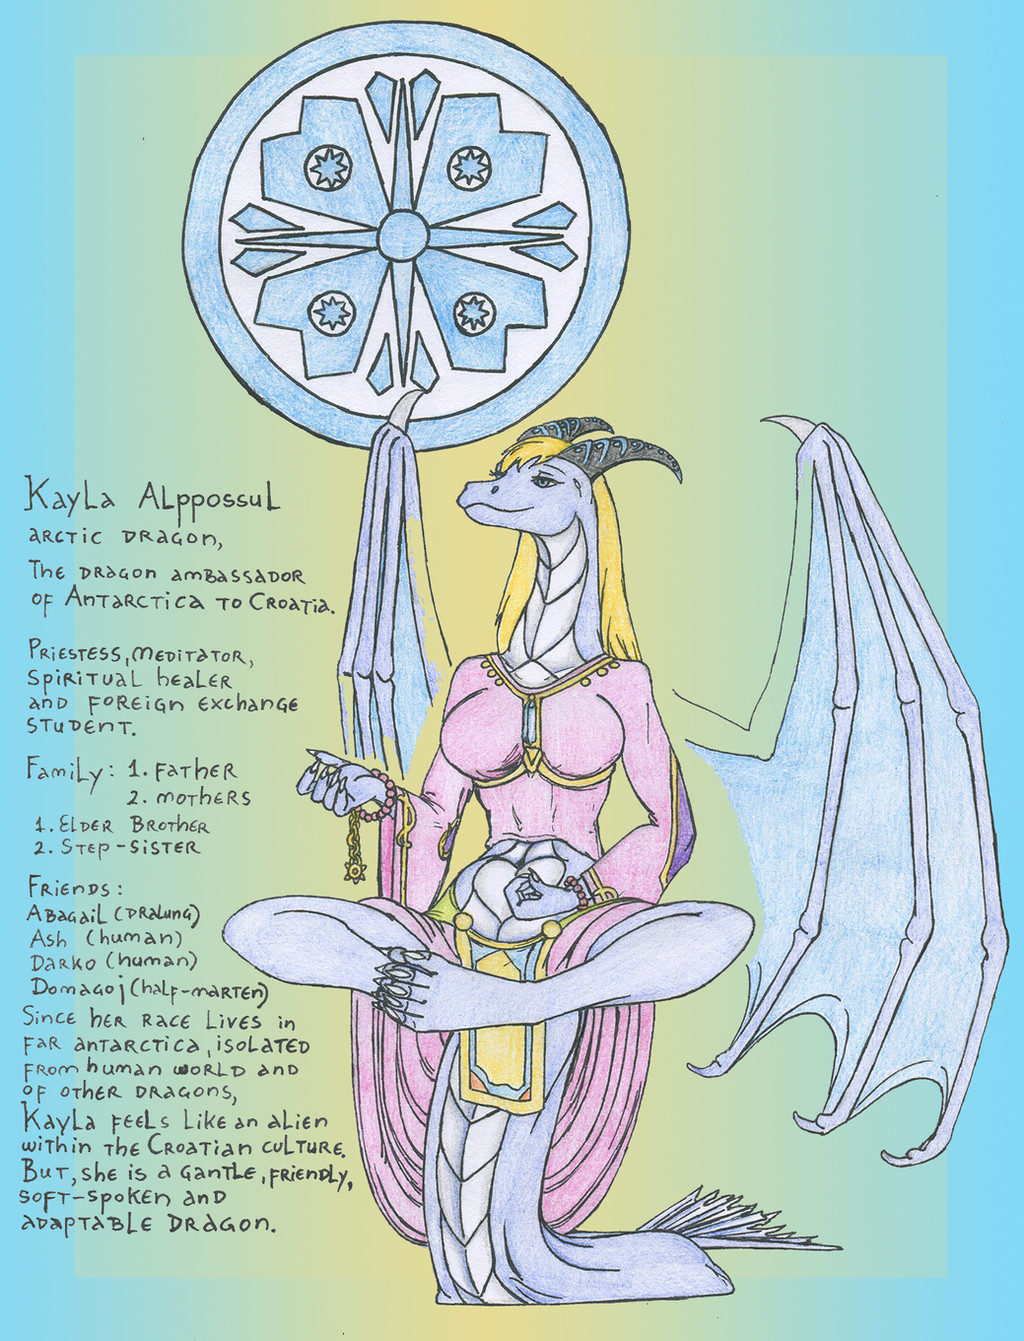 Kayla Alppossul
arctic dragon,
The dragon ambassador
of Antarctica to Croatia.
Priestess, meditator,
spiritual healer
and foreign exchange
student.
Family: 1. Father
2. mothers
1. Elder Brother
2. Step-sister
Friends:
Abagail (Dralung)
Ash (human)
Darko (human)
Domagoj (half-marten)
Since her race lives in
far antarctica, isolated
from human world and
of other dragons,
Kayla feels like an alien
within the Croatian culture.
But, she is a gantle, friendly,
soft-spoken and
adaptable dragon.